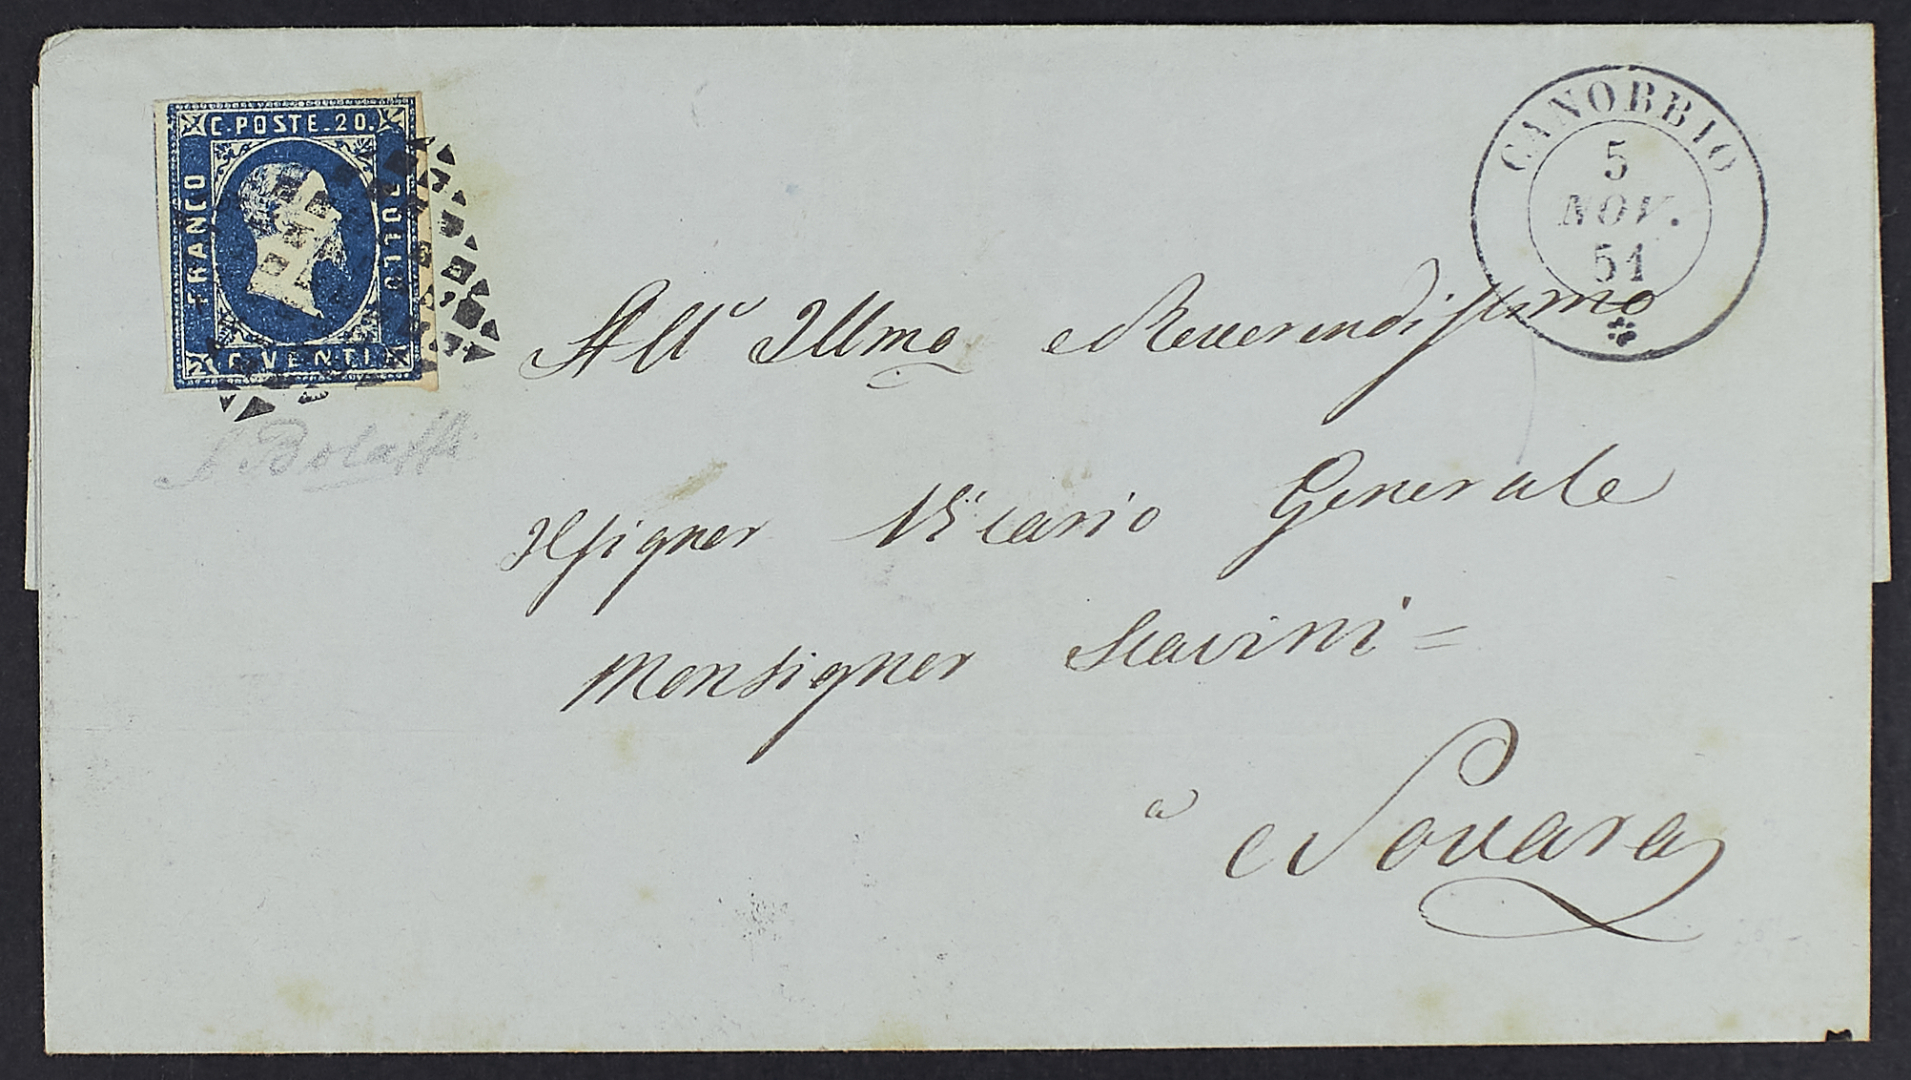 C. POSTE. 20.
FRANCO
BOLLO
C. VENTI
CANOBBIO
5
NOV.
51
A. Bolaffi
All' Illmo e Reverendissimo
Il signor Vicario Generale
Monsignor Scavini =
a Novara